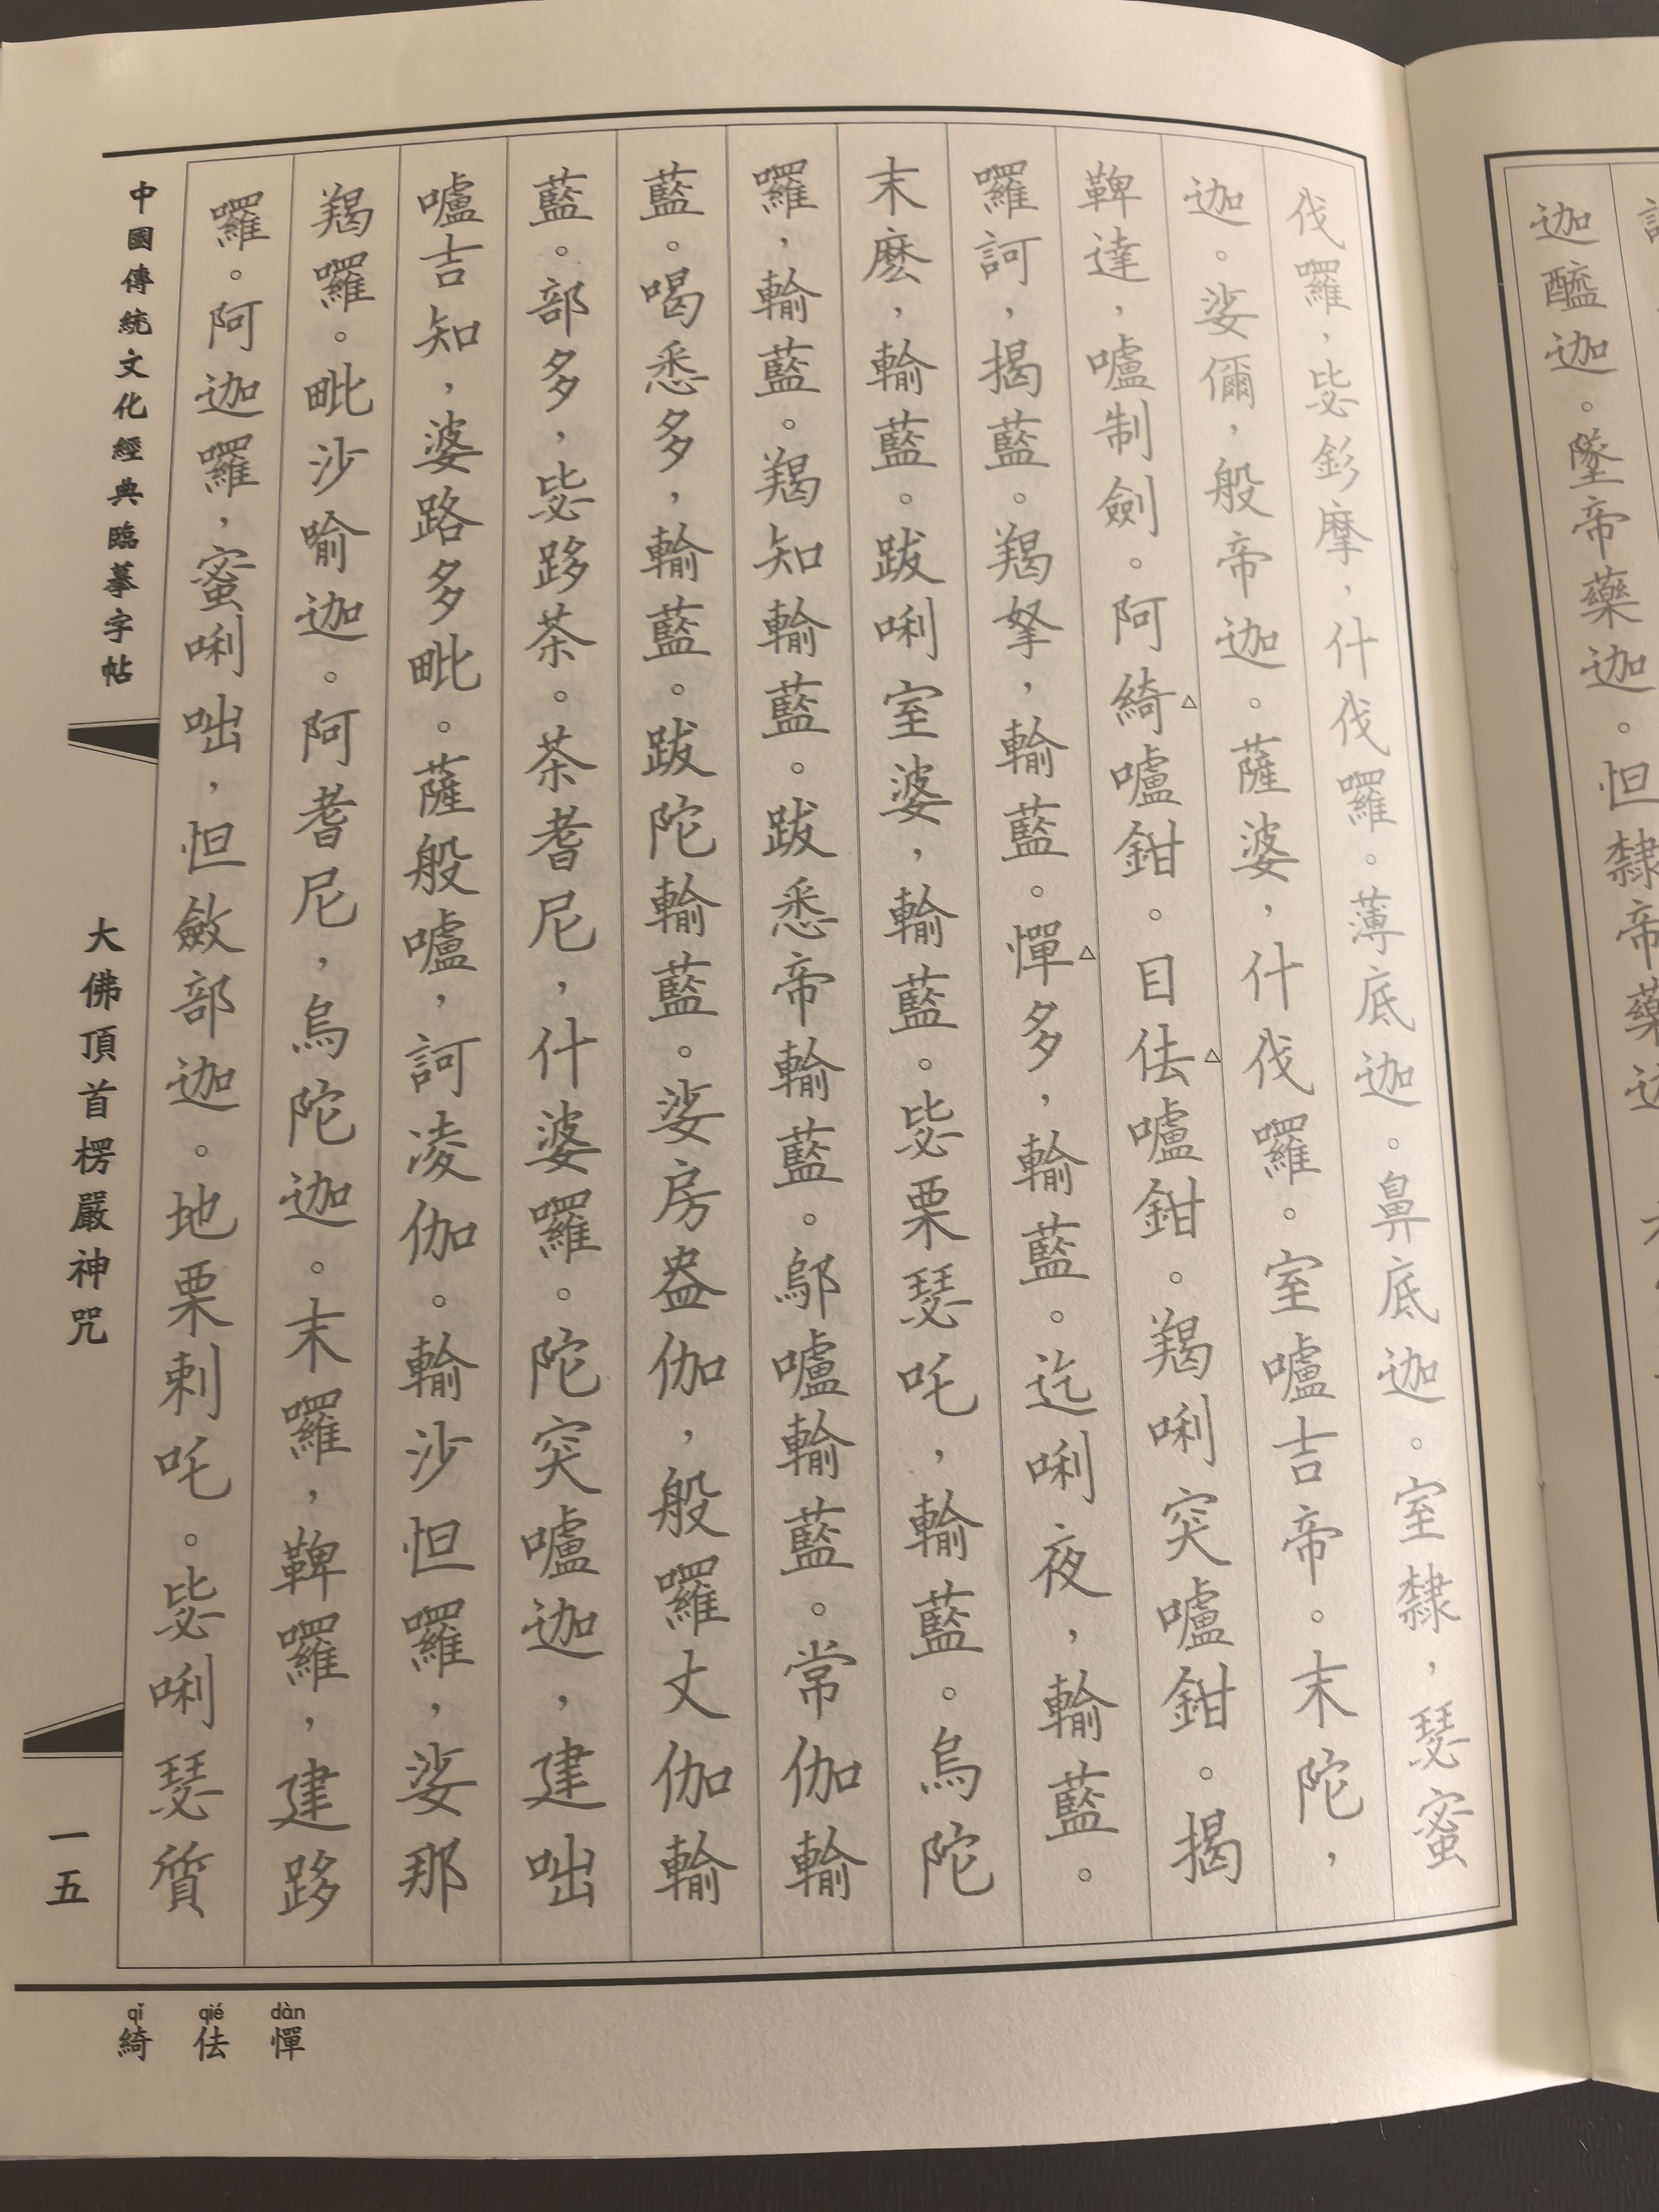 伐囉，毖釤摩，什伐囉。薄底迦。鼻底迦。室隸，瑟蜜
迦。娑儞，般帝迦。薩婆，什伐囉。室嚧吉帝。末陀，
鞞達，嚧制劍。阿綺嚧鉗。目佉嚧鉗。羯唎突嚧鉗。揭
囉訶，揭藍。羯拏，輸藍。憚多，輸藍。迄唎夜，輸藍。
末麽，輸藍。跋唎室婆，輸藍。毖栗瑟吒，輸藍。烏陀
囉，輸藍。羯知輸藍。跋悉帝輸藍。鄔嚧輸藍。常伽輸
藍。喝悉多，輸藍。跋陀輸藍。娑房盎伽，般囉丈伽輸
藍。部多，毖跢茶。茶耆尼，什婆囉。陀突嚧迦，建咄
嚧吉知，婆路多毗。薩般嚧，訶凌伽。輸沙怛囉，娑那
羯囉。毗沙喻迦。阿耆尼，烏陀迦。末囉，鞞囉，建跢
囉。阿迦囉，蜜唎咄，怛斂部迦。地栗剌吒。毖唎瑟質
中國傳統文化經典臨摹字帖
大佛頂首楞嚴神咒
一五
qǐ qié dàn
綺 佉 憚
迦醯迦。墜帝藥迦。怛隸帝藥迦